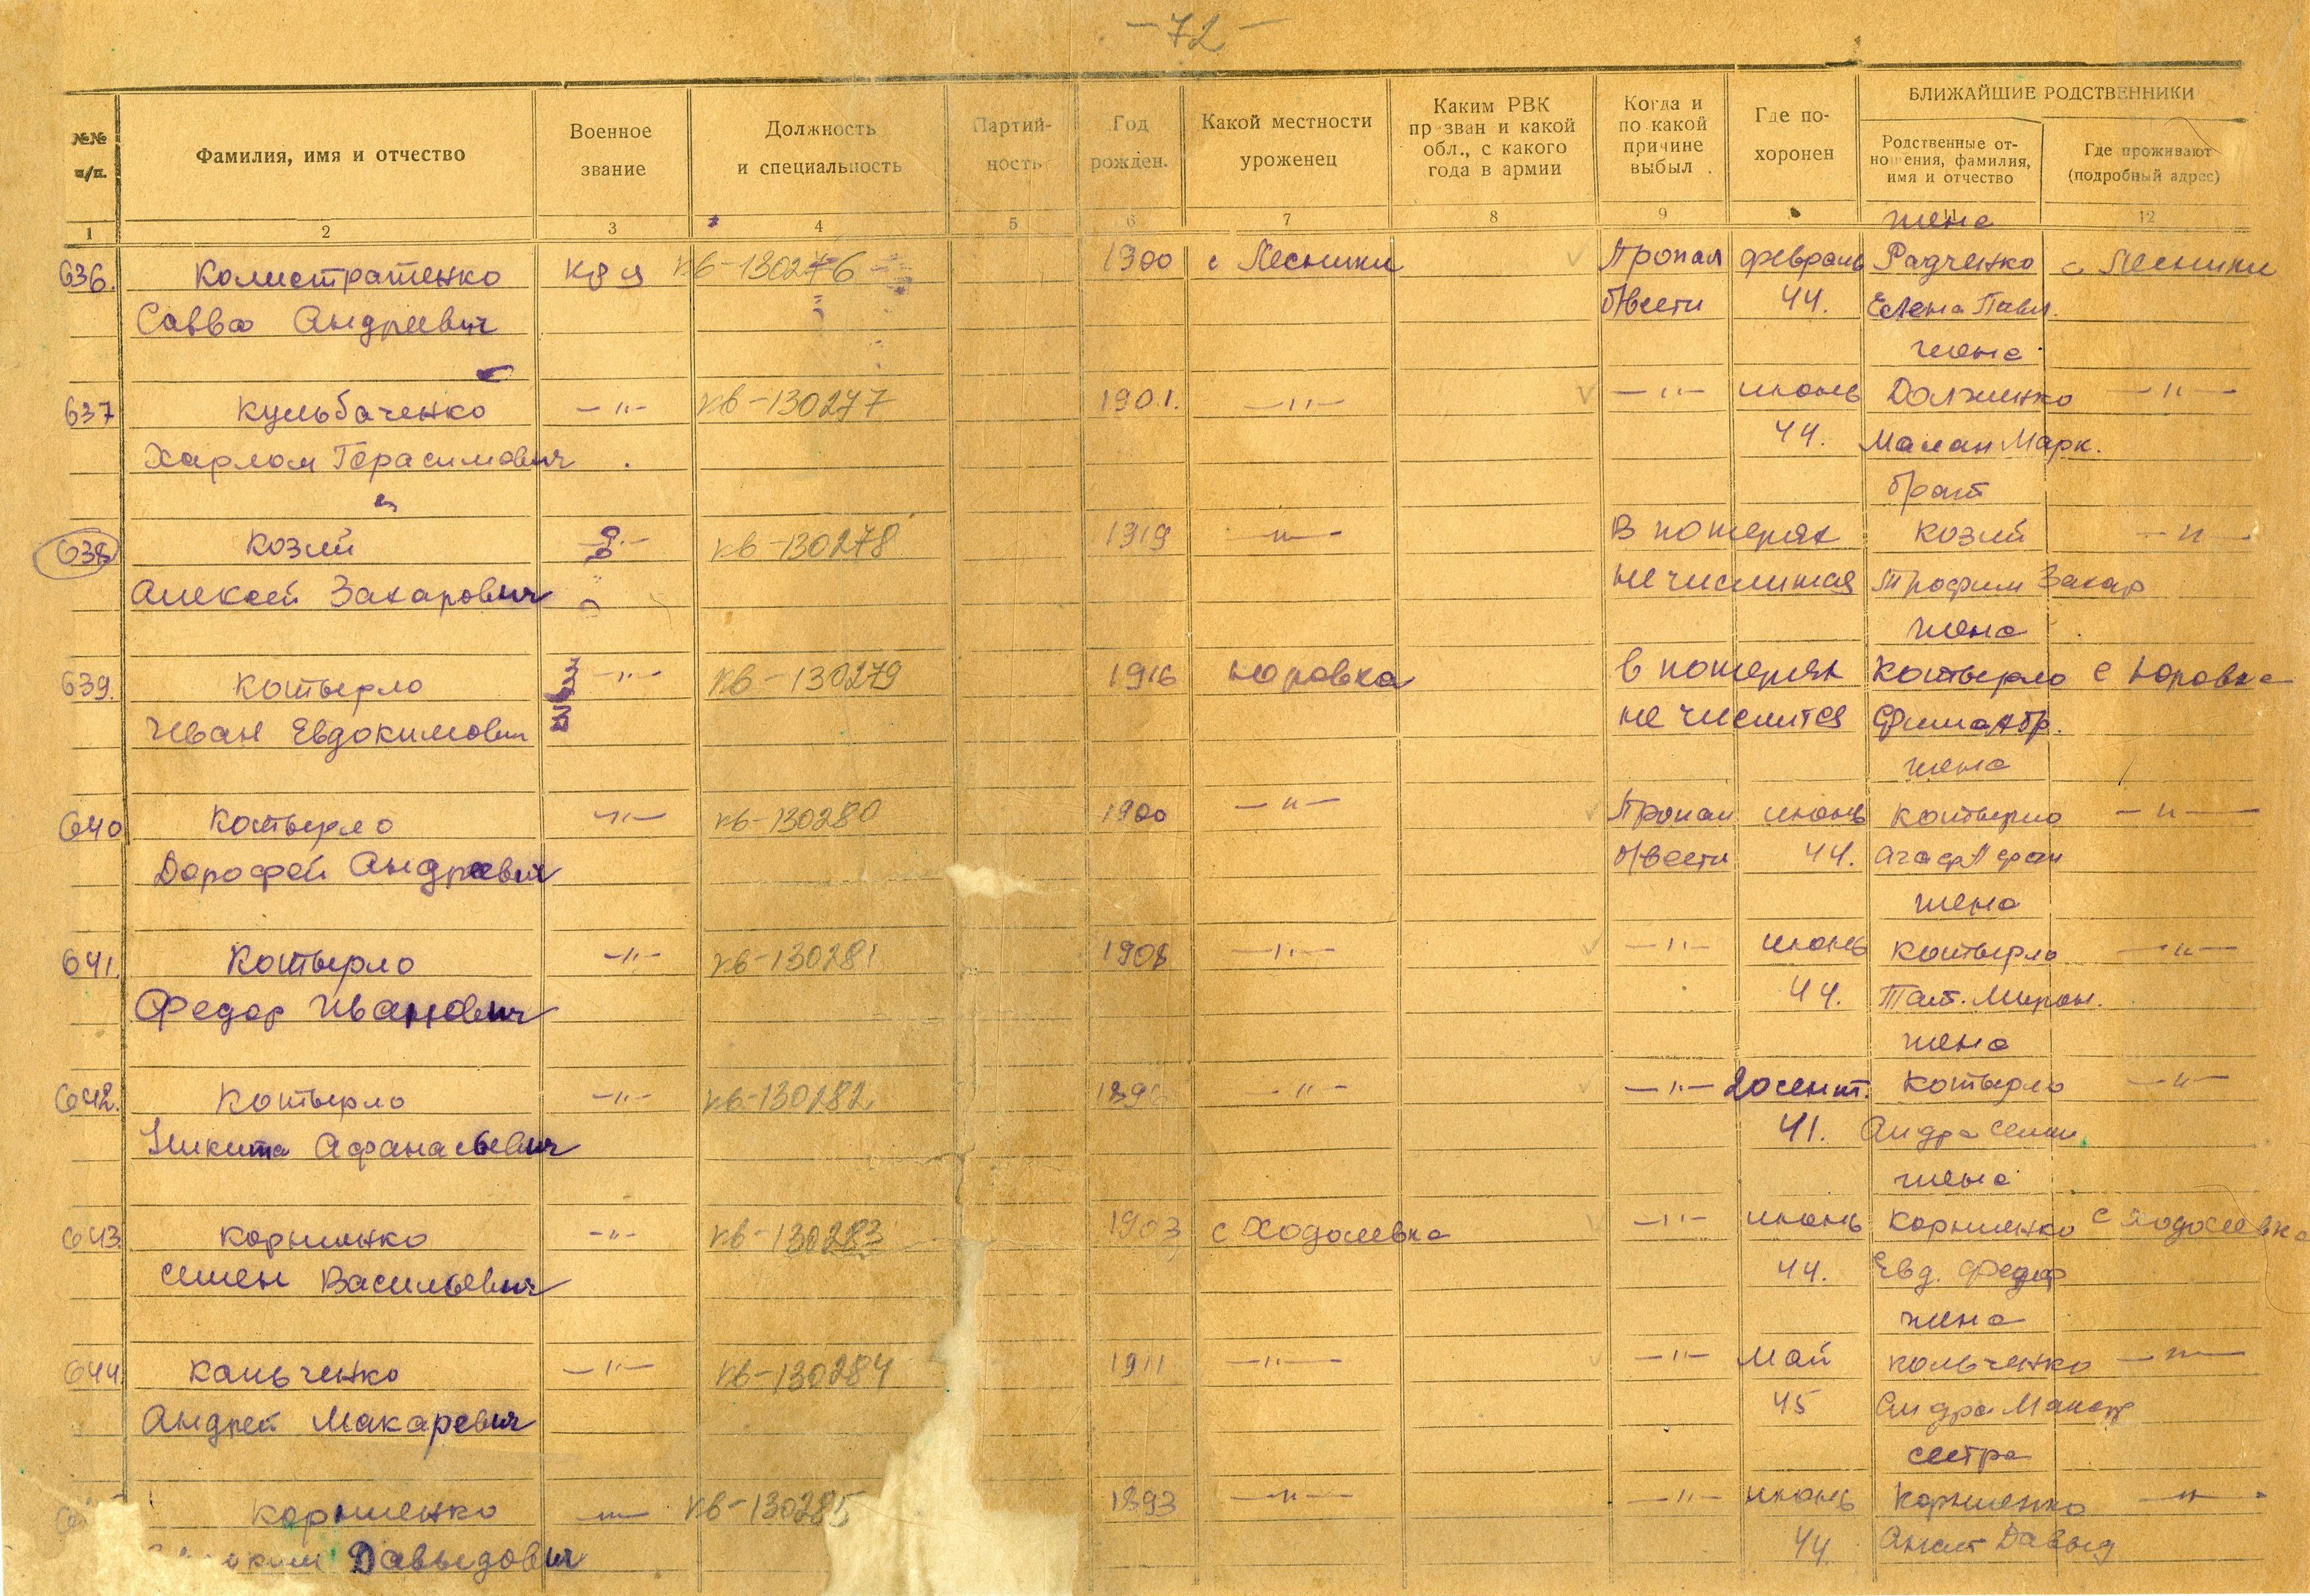 — 72 —
№№ п/п.
Фамилия, имя и отчество
Военное звание
Должность и специальность
Партий-ность
Год рожден.
Какой местности уроженец
Каким РВК призван и какой обл., с какого года в армии
Когда и по какой причине выбыл
Где по-хоронен
БЛИЖАЙШИЕ РОДСТВЕННИКИ
Родственные от-ношения, фамилия, имя и отчество
Где проживают (подробный адрес)
1 2 3 4 5 6 7 8 9 11 12
жена
636. Калистратенко к-ц кв-130276 1900 с Лесники Пропал февраль Радченко с Лесники
Савва Андреевич б/вести 44. Елена Павл.
жена
637 Кульбаченко —"— кв-130277 1901. —"— —"— июнь Долженко —"—
Харлам Герасимович 44. Малан Марк.
брат
638 Козий —"— кв-130278 1919 —"— В потерях Козий —"—
Алексей Захарович не числится Трофим Захар
жена
639. Котырло —"— кв-130279 1916 Юровка в потерях Котырло с Юровка
Иван Евдокимович не числится
жена
640 Котырло —"— кв-130280 1900 —"— Пропал июнь Котырло —"—
Дорофей Андреевич б/вести 44.
жена
641. Котырло —"— кв-130281 1908 —"— —"— июнь Котырло —"—
Федор Иванович 44. Тат. Мирон.
жена
642. Котырло —"— кв-130282 —"— —"— 20 сент. Котырло —"—
Никита Афанасьевич 41.
жена
643. Корниенко —"— кв-130283 1903 с Ходосевка —"— июнь Корниенко с Ходосевка
Семен Васильевич 44. Евд. Федор
жена
644. Кальченко —"— кв-130284 1911 —"— —"— май Кальченко —"—
Андрей Макаревич 45
сестра
6 Корниенко —"— кв-130285 1893 —"— —"— июнь Корниенко —"—
Давыдович 44 Анаст Давыд